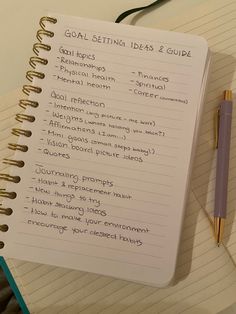 GOAL SETTING IDEAS & GUIDE
Goal topics
- Relationships
- Physical health
- Mental health
- Finances
- Spiritual
- Career
Goal reflection
- Intention (big picture - my why)
- Weights (whats holding you back?)
- Affirmations (I am...)
- Mini goals (small steps, baby!)
- Vision board picture ideas
- Quotes
Journaling prompts
- Habit & replacement habit
- New things to try
- Habit stacking ideas
- How to make your environment
encourage your desired habits